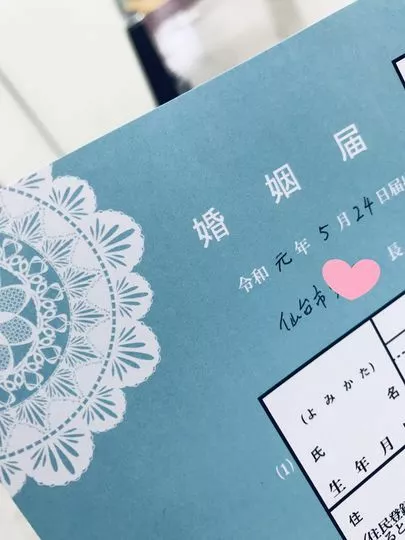 婚姻届
令和元年5月24日届
仙台市
長
(よみかた)
氏名
(1)
生年月
住
(住民登録
ると